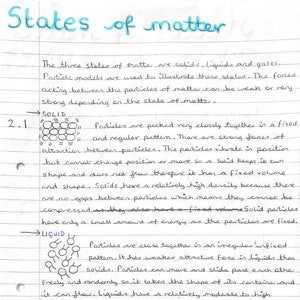 States of matter
The three states of matter are solids, liquids and gases.
Particle models are used to illustrate these states. The forces
acting between the particles of matter can be weak or very
strong depending on the state of matter.
→SOLID
2.1 Particles are packed very closely together in a fixed
and regular pattern. There are strong forces of
attraction between particles. The particles vibrate in position
but cannot change position or move so a solid keeps its own
shape and does not flow therefore it has a fixed volume
and shape. Solids have a relatively high density because there
are no gaps between particles which means they cannot be
compressed as they also have a fixed volume Solid particles
have only a small amount of energy as the particles are fixed.
→LIQUID
Particles are close together in an irregular unfixed
pattern. It has weaker attractive force is liquids than
solids. Particles can move and slide past each other
freely and randomly so it takes the shape of its container and
it can flow. Liquids have a relatively moderate to high